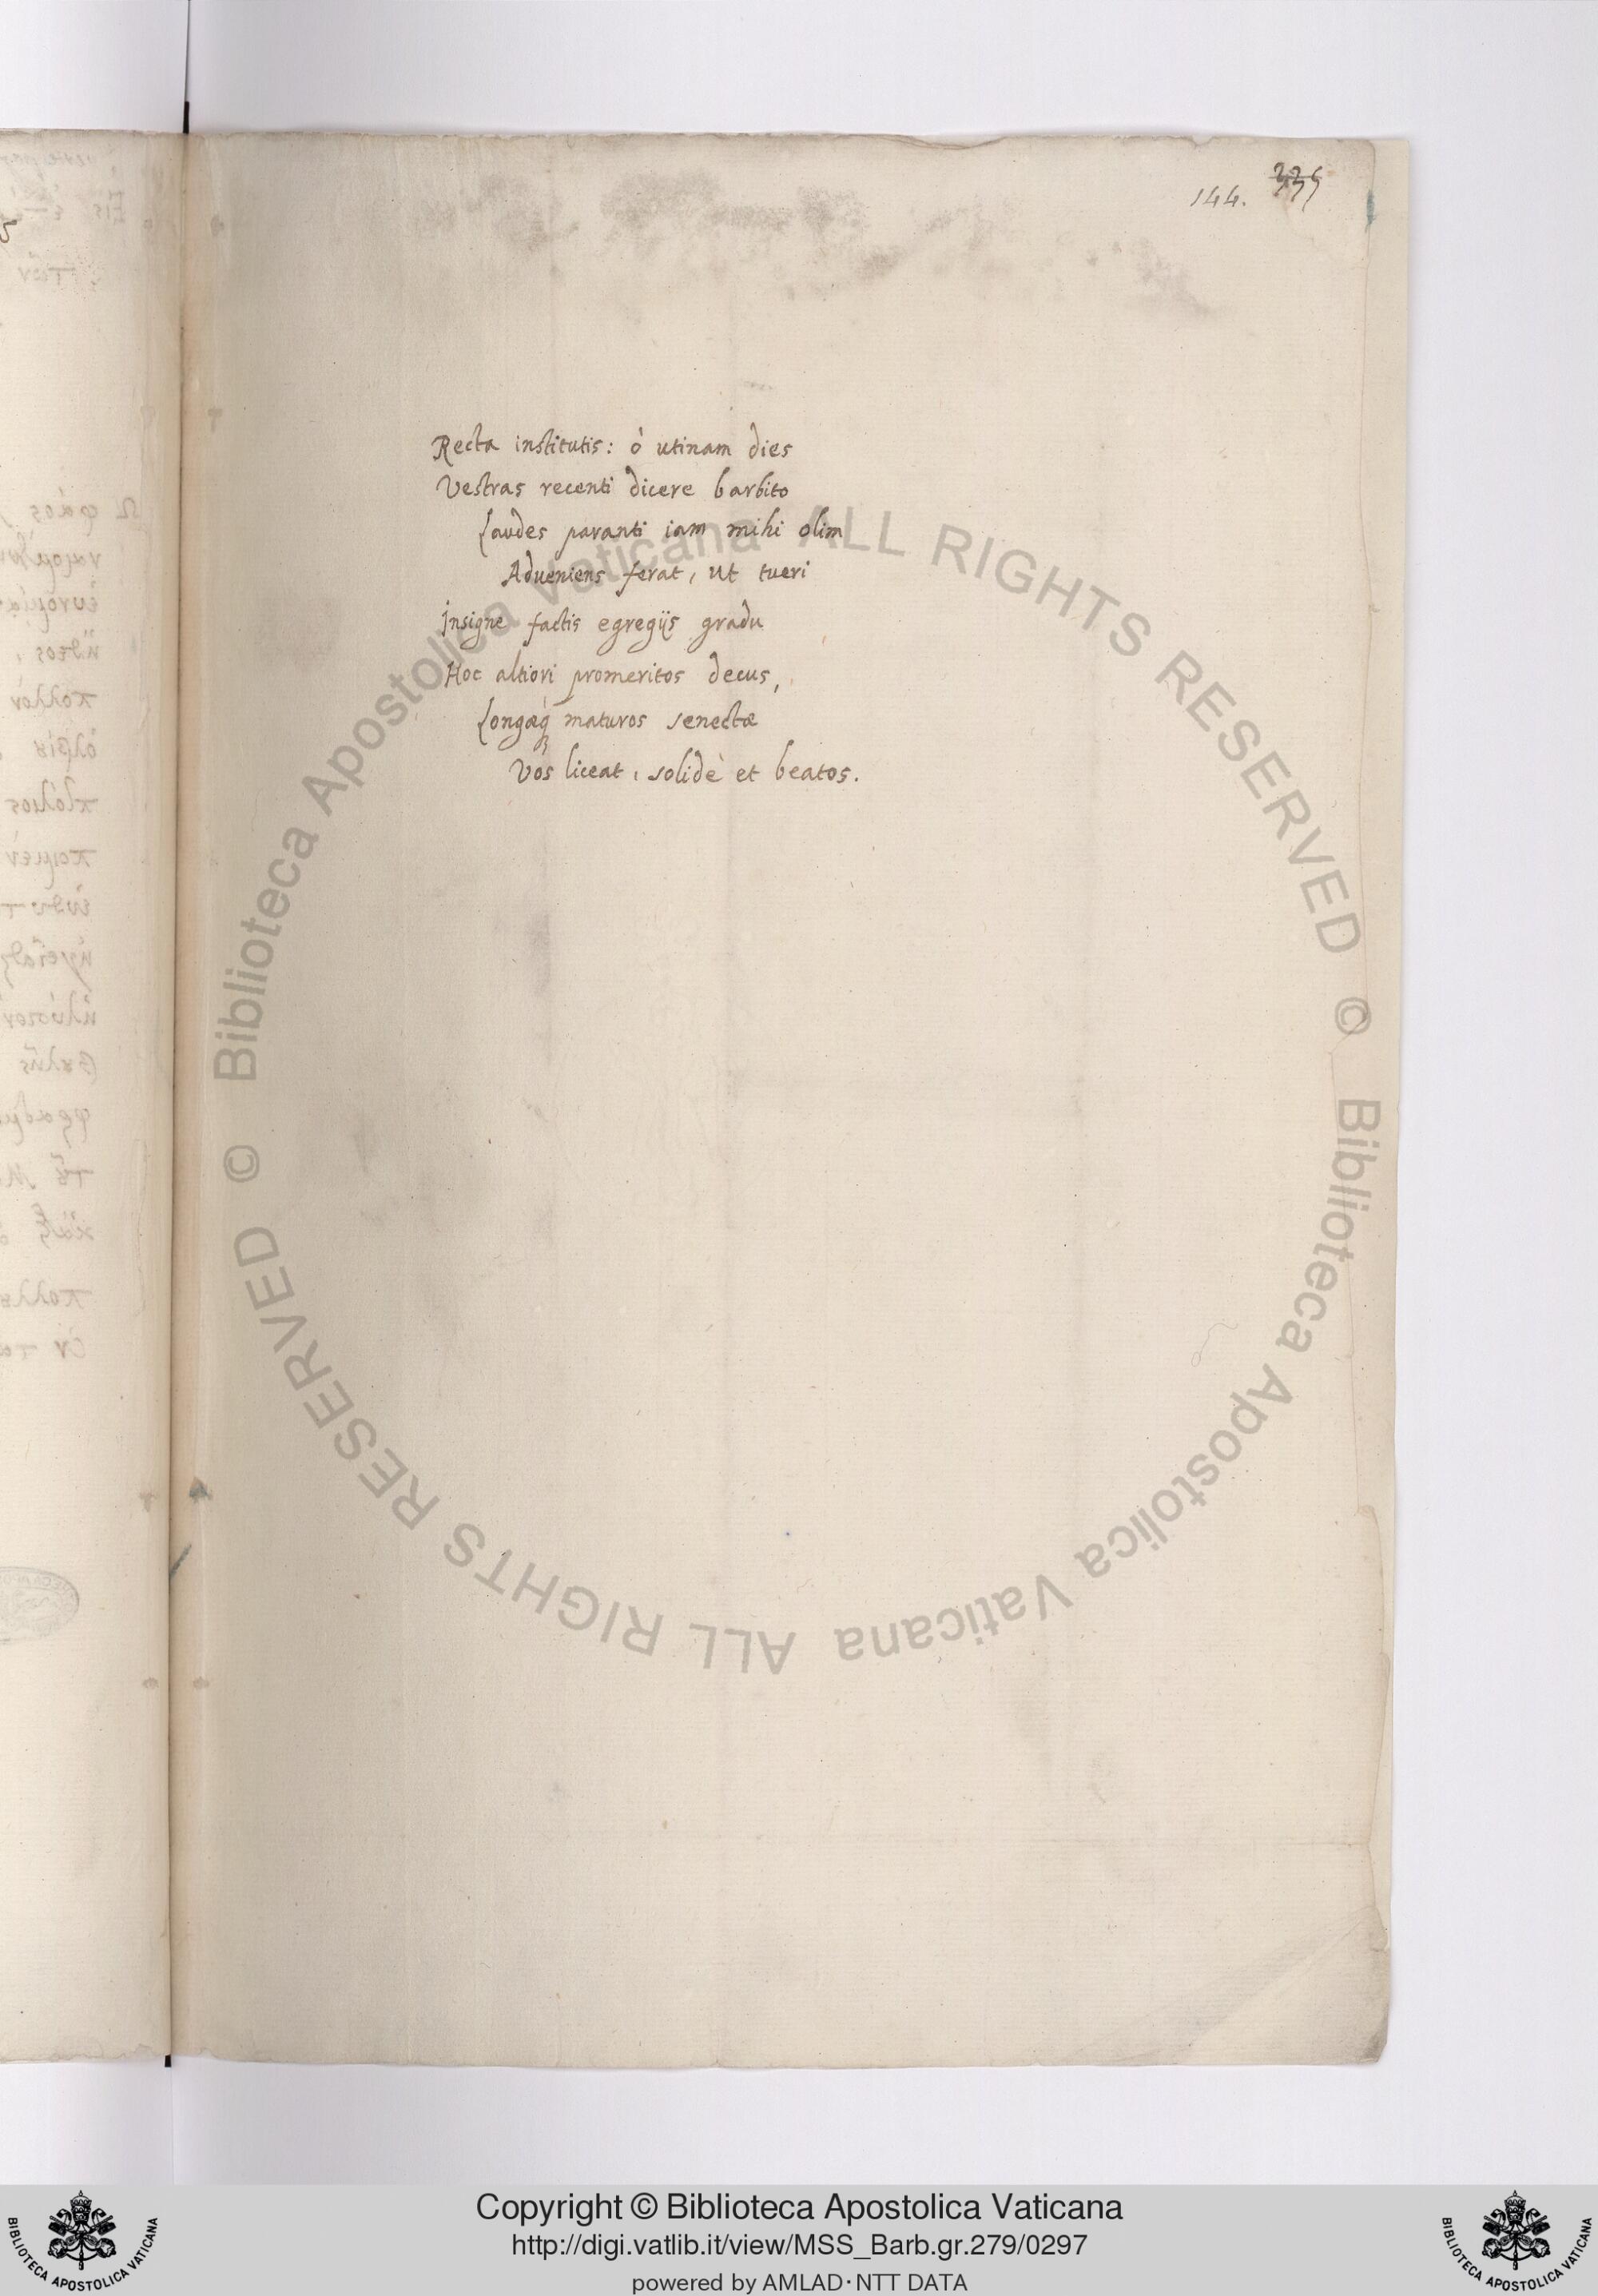 144. 335
Recta institutis: ò utinam dies
Vestras recenti dicere barbito
Laudes paranti iam mihi olim
Adueniens ferat, ut tueri
Insigne factis egregijs gradu
Hoc altiori promeritos decus,
Longæq́ꝫ maturos senectæ
Vos liceat, solidè et beatos.
© Biblioteca Apostolica Vaticana ALL RIGHTS RESERVED
© Biblioteca Apostolica Vaticana ALL RIGHTS RESERVED
Copyright © Biblioteca Apostolica Vaticana
http://digi.vatlib.it/view/MSS_Barb.gr.279/0297
powered by AMLAD·NTT DATA
BIBLIOTECA APOSTOLICA VATICANA
BIBLIOTECA APOSTOLICA VATICANA